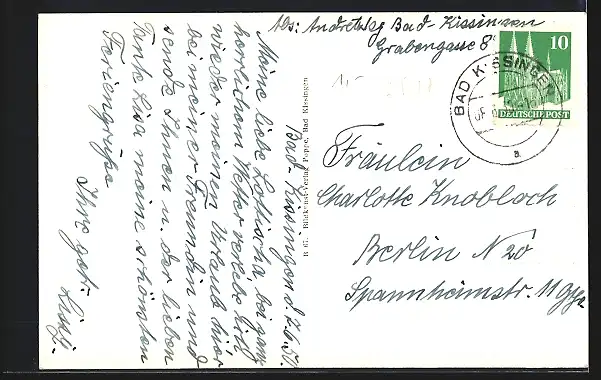 Abs: Andretzky Bad-Kissingen
Grabengasse 8
10
DEUTSCHE POST
BAD KISSINGEN
a
Bad-Kissingen d. 7.6.51.
Meine liebe Lottischa, bei ganz
herrlichem Wetter verlebe ich
wieder meinen Urlaub hier
bei meiner Freundin und
sende Ihnen u. der lieben
Tante Lisa meine schönsten
Feriengrüße
Ihre
B. G. Blickkunst-Verlag Poppe, Bad Kissingen
Fräulein
Charlotte Knobloch
Berlin N 20
Spannheimstr. 11